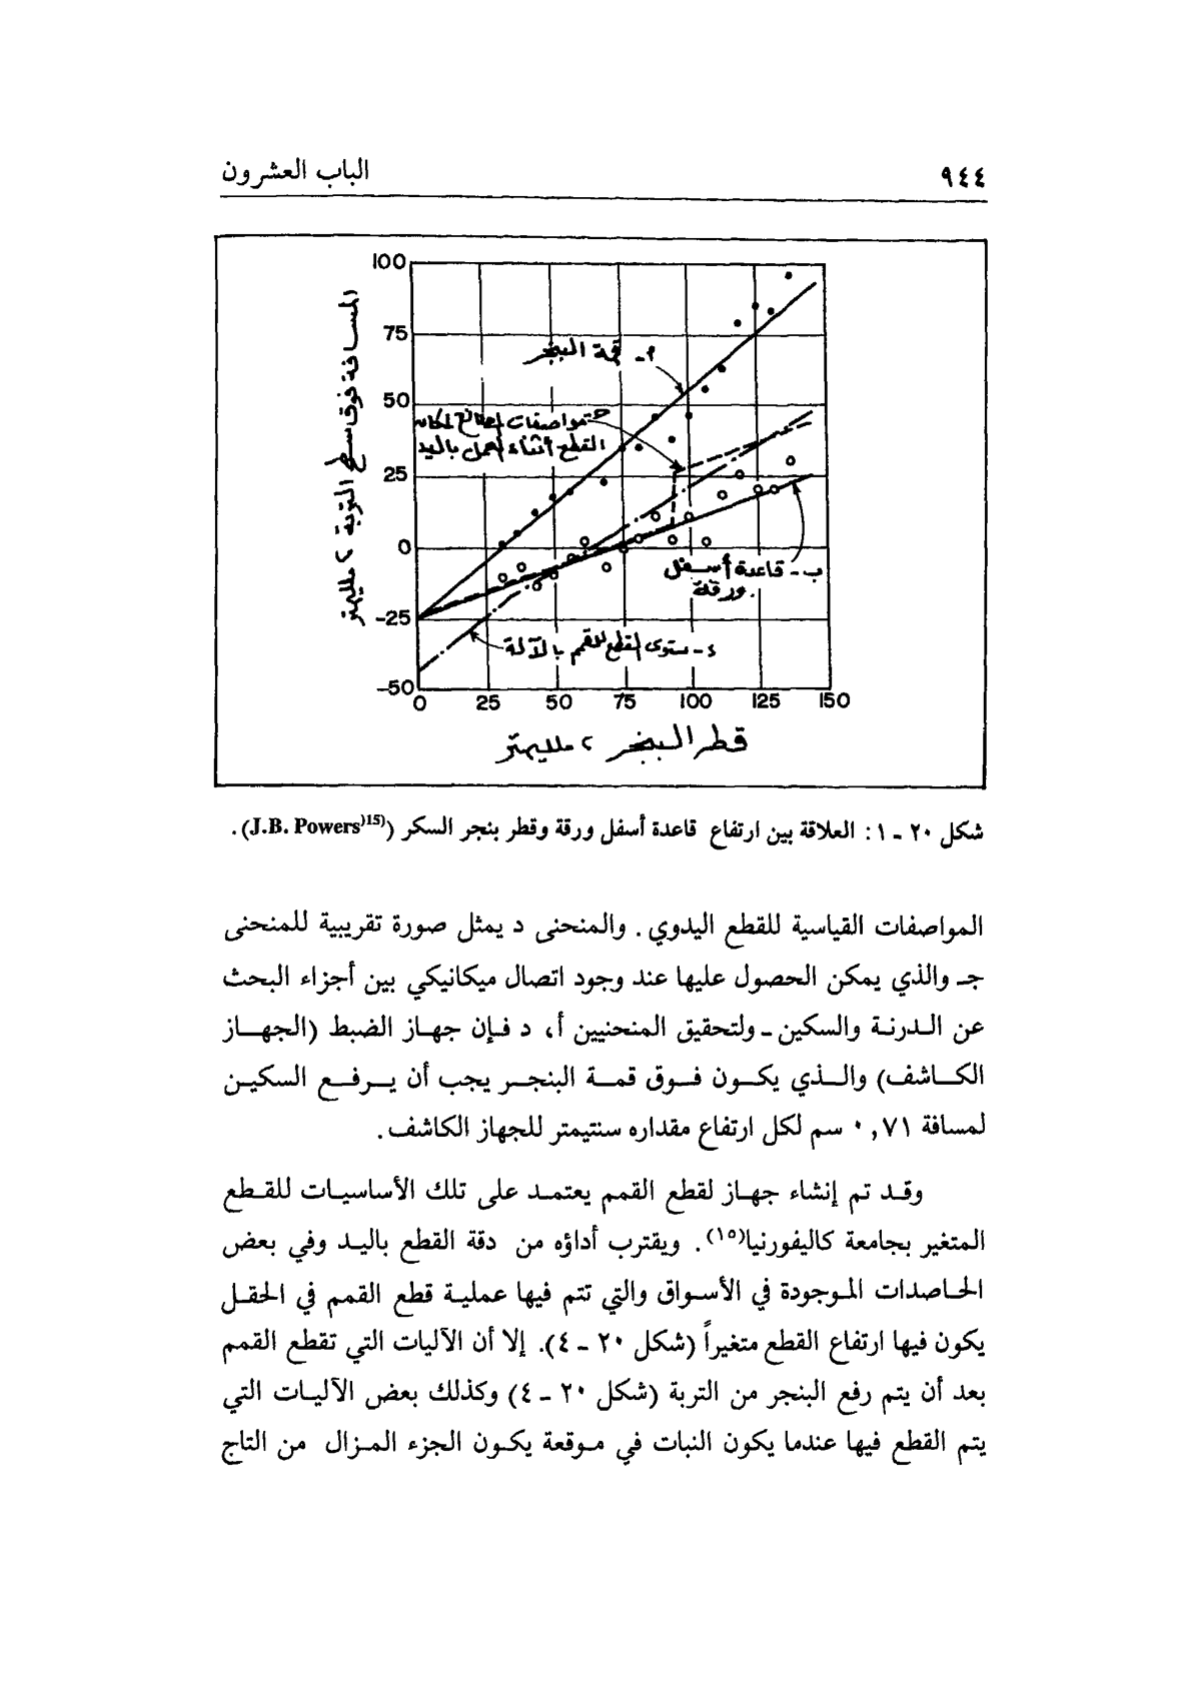 ٩٤٤
الباب العشرون
100
75
50
25
0
-25
-50
0 25 50 75 100 125 150
المسافة فوق سطح التربة ، ملليمتر
أ - قمة البنجر
جـ مواصفات المصانع لمكان
القطع أثناء العمل باليد
ب - قاعدة أسفل
ورقة.
د - مستوى القطع للقمم بالآلة
قطر البنجر ، ملليمتر
شكل ٢٠ - ١ : العلاقة بين ارتفاع قاعدة أسفل ورقة وقطر بنجر السكر (J.B. Powers⁽¹⁵⁾) .
المواصفات القياسية للقطع اليدوي . والمنحنى د يمثل صورة تقريبية للمنحنى
جـ والذي يمكن الحصول عليها عند وجود اتصال ميكانيكي بين أجزاء البحث
عن الدرنة والسكين - ولتحقيق المنحنيين أ، د فإن جهاز الضبط (الجهاز
الكاشف) والذي يكون فوق قمة البنجر يجب أن يرفع السكين
لمسافة ٠,٧١ سم لكل ارتفاع مقداره سنتيمتر للجهاز الكاشف .
وقد تم إنشاء جهاز لقطع القمم يعتمد على تلك الأساسيات للقطع
المتغير بجامعة كاليفورنيا⁽¹⁵⁾ . ويقترب أداؤه من دقة القطع باليد وفي بعض
الحاصدات الموجودة في الأسواق والتي تتم فيها عملية قطع القمم في الحقل
يكون فيها ارتفاع القطع متغيراً (شكل ٢٠ - ٤). إلا أن الآليات التي تقطع القمم
بعد أن يتم رفع البنجر من التربة (شكل ٢٠ - ٤) وكذلك بعض الآليات التي
يتم القطع فيها عندما يكون النبات في موقعة يكون الجزء المزال من التاج